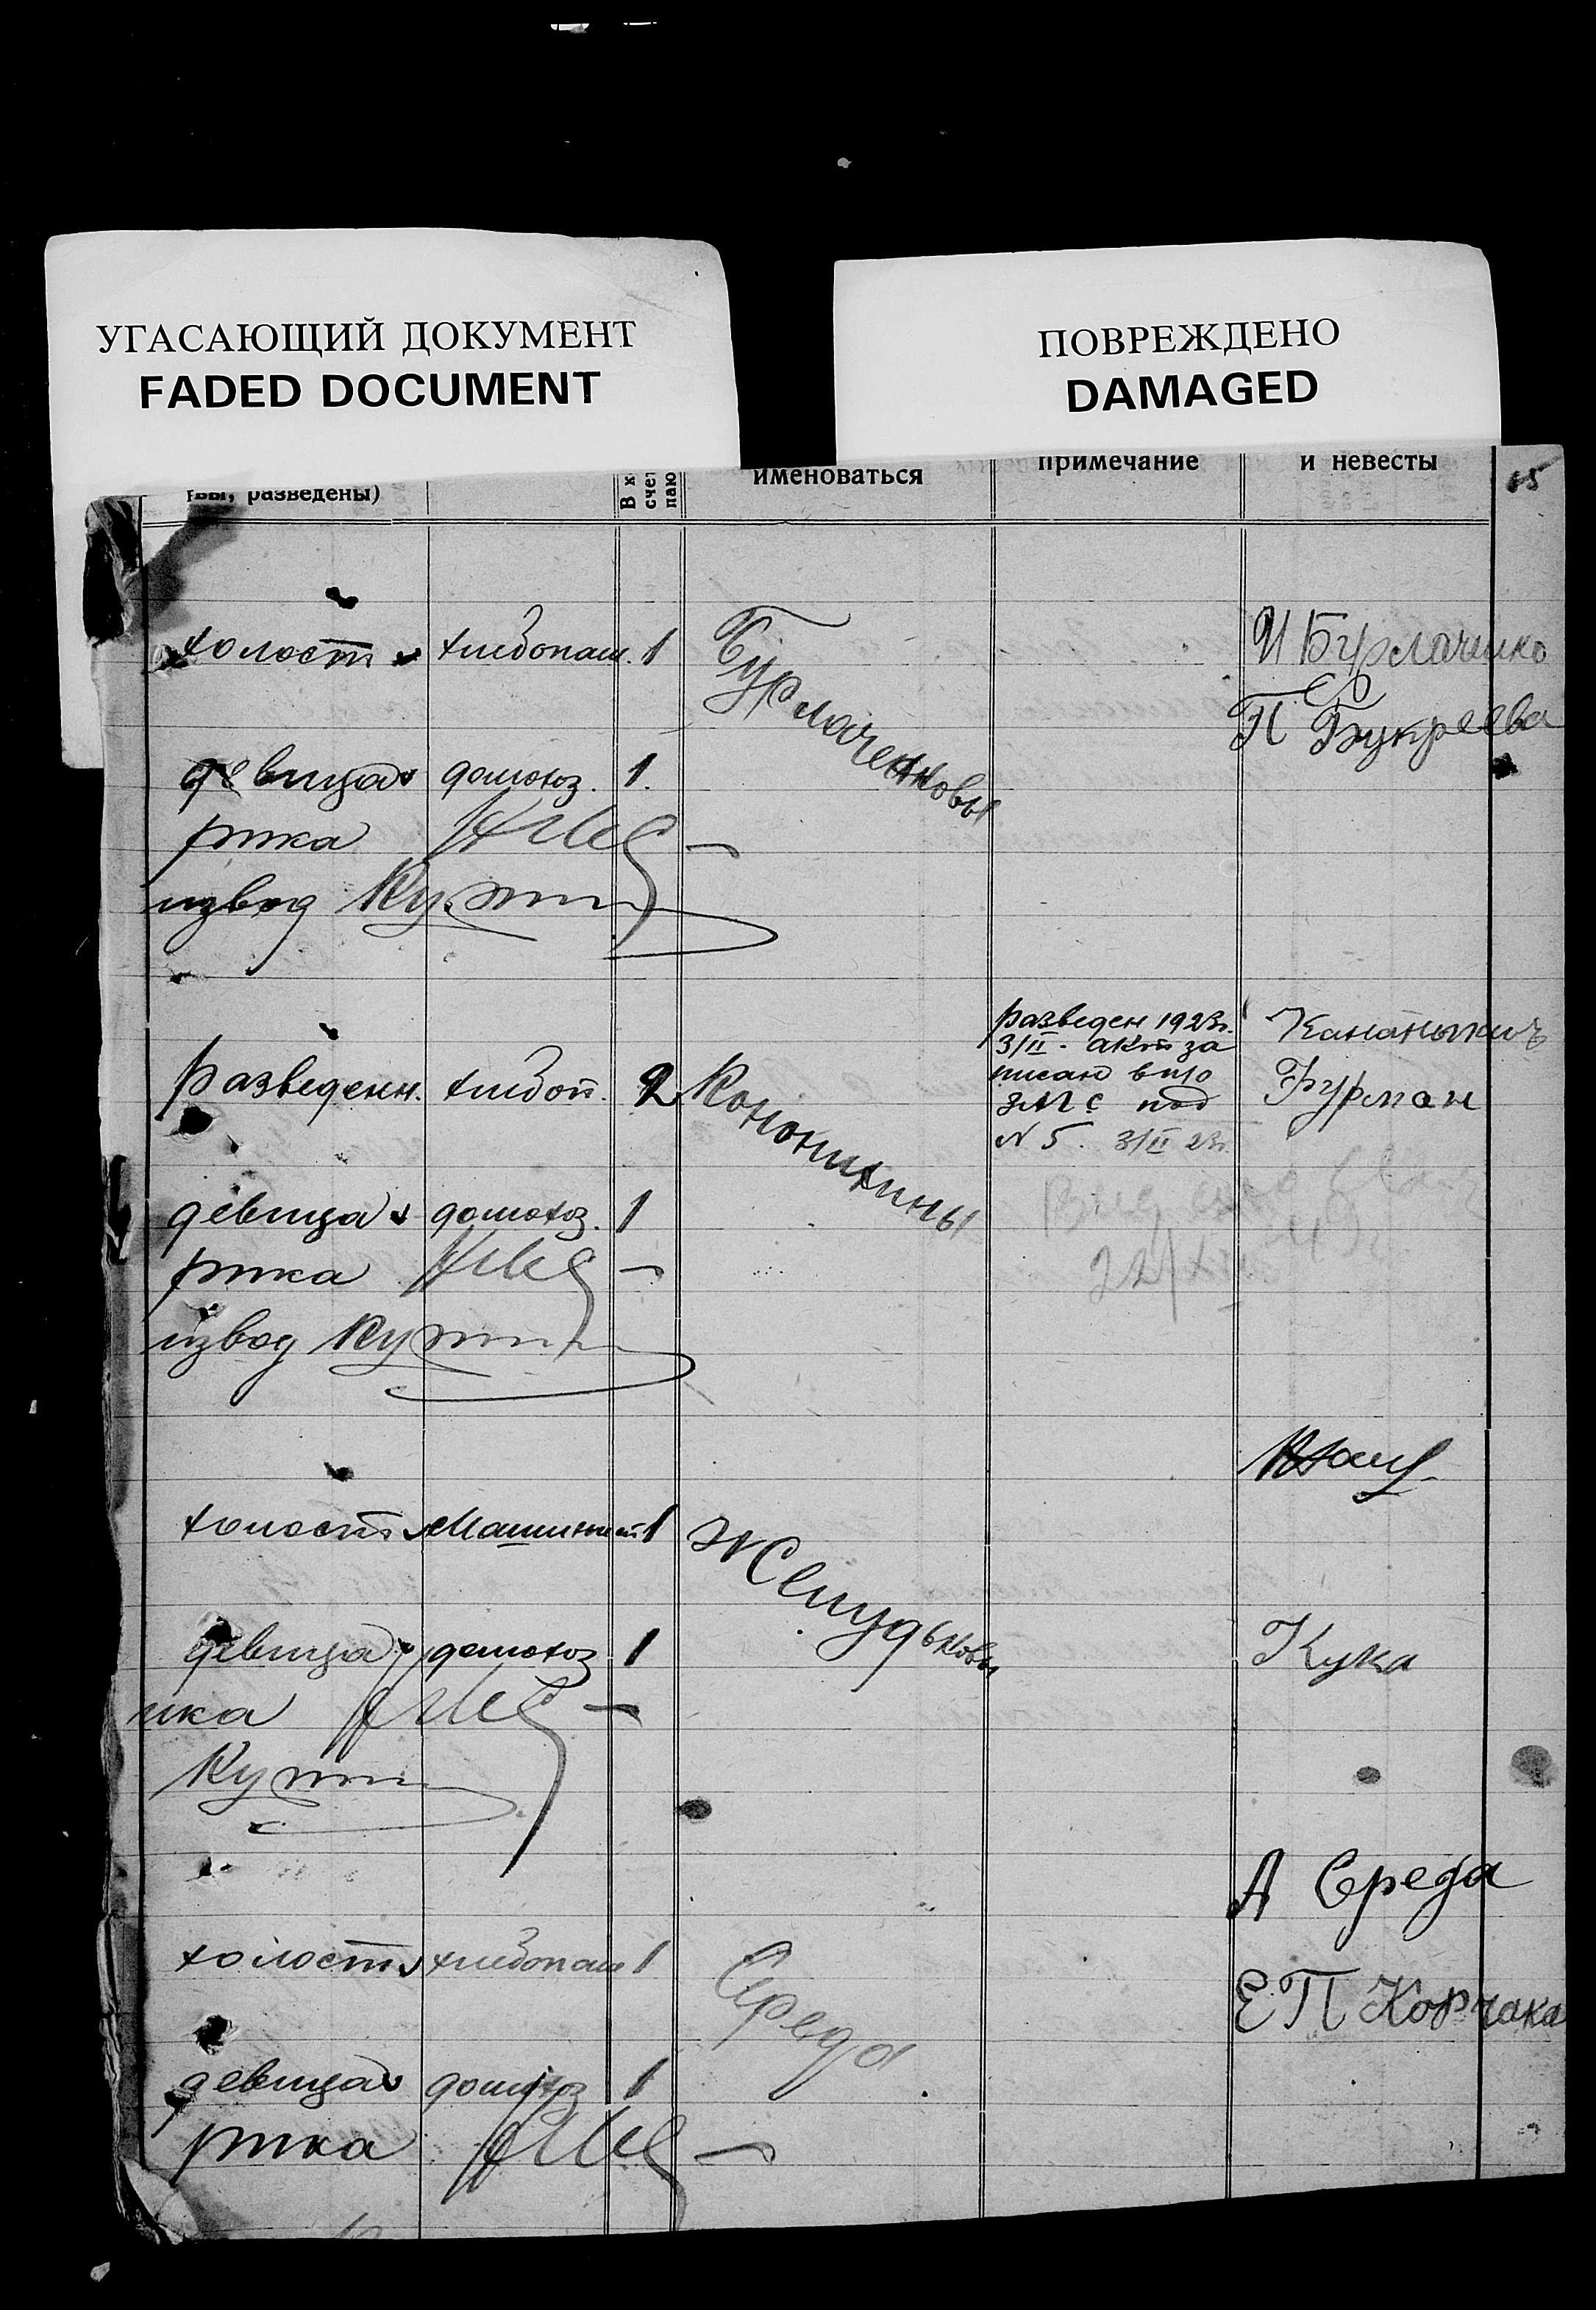 УГАСАЮЩИЙ ДОКУМЕНТ
FADED DOCUMENT
ПОВРЕЖДЕНО
DAMAGED
вы, разведены)
В к
счет
паю
именоваться
примечание
и невесты
холост хлебопаш. 1 Бурлаченковы И Бурлаченко
П Букреева
девица домохоз. 1.
ртка
извод
разведен 1923г.
3/II - акт за
писан в
ЗАГС под
N 5. 3/II 23г.
разведенн. хлебоп. 2 Кононихины
Фурман
девица домохоз. 1
ртка
извод
22/
холост Машинист 1 Желудьковы
девица домохоз 1 Кука
ика
А Середа
холост хлебопаш 1 Середа
ЕП Корчака
девица домохоз 1
ртка